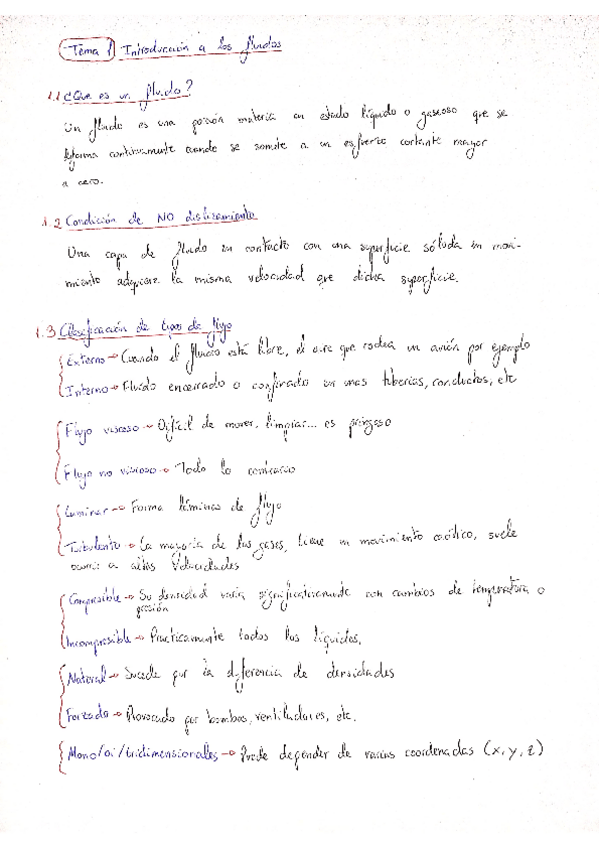 Tema 1 Introducción a los fluidos
1.1 ¿Que es un fluido?
Un fluido es una porción materia en estado líquido o gaseoso que se
deforma continuamente cuando se somete a un esfuerzo cortante mayor
a cero.
1.2 Condición de NO deslizamiento
Una capa de fluido en contacto con una superficie sólida en movi-
miento adquiere la misma velocidad que dicha superficie.
1.3 Clasificación de tipos de flujo
Externo → Cuando el fluido está libre, el aire que rodea un avión por ejemplo
Interno → Fluido encerrado o confinado en unas tuberias, conductos, etc
Flujo viscoso → Difícil de mover, limpiar... es pringoso
Flujo no viscoso → Todo lo contrario
Laminar → Forma láminas de flujo
Turbulento → La mayoría de los gases, tiene un movimiento caótico, suele
ocurrir a altas velocidades
Compresible → Su densidad varía significativamente con cambios de temperatura o
presión
Incompresible → Practicamente todos los líquidos.
Natural → Sucede por la diferencia de densidades
Forzado → Provocado por bombas, ventiladores, etc.
Mono/bi/tridimensionales → Puede depender de varias coordenadas (x, y, z)